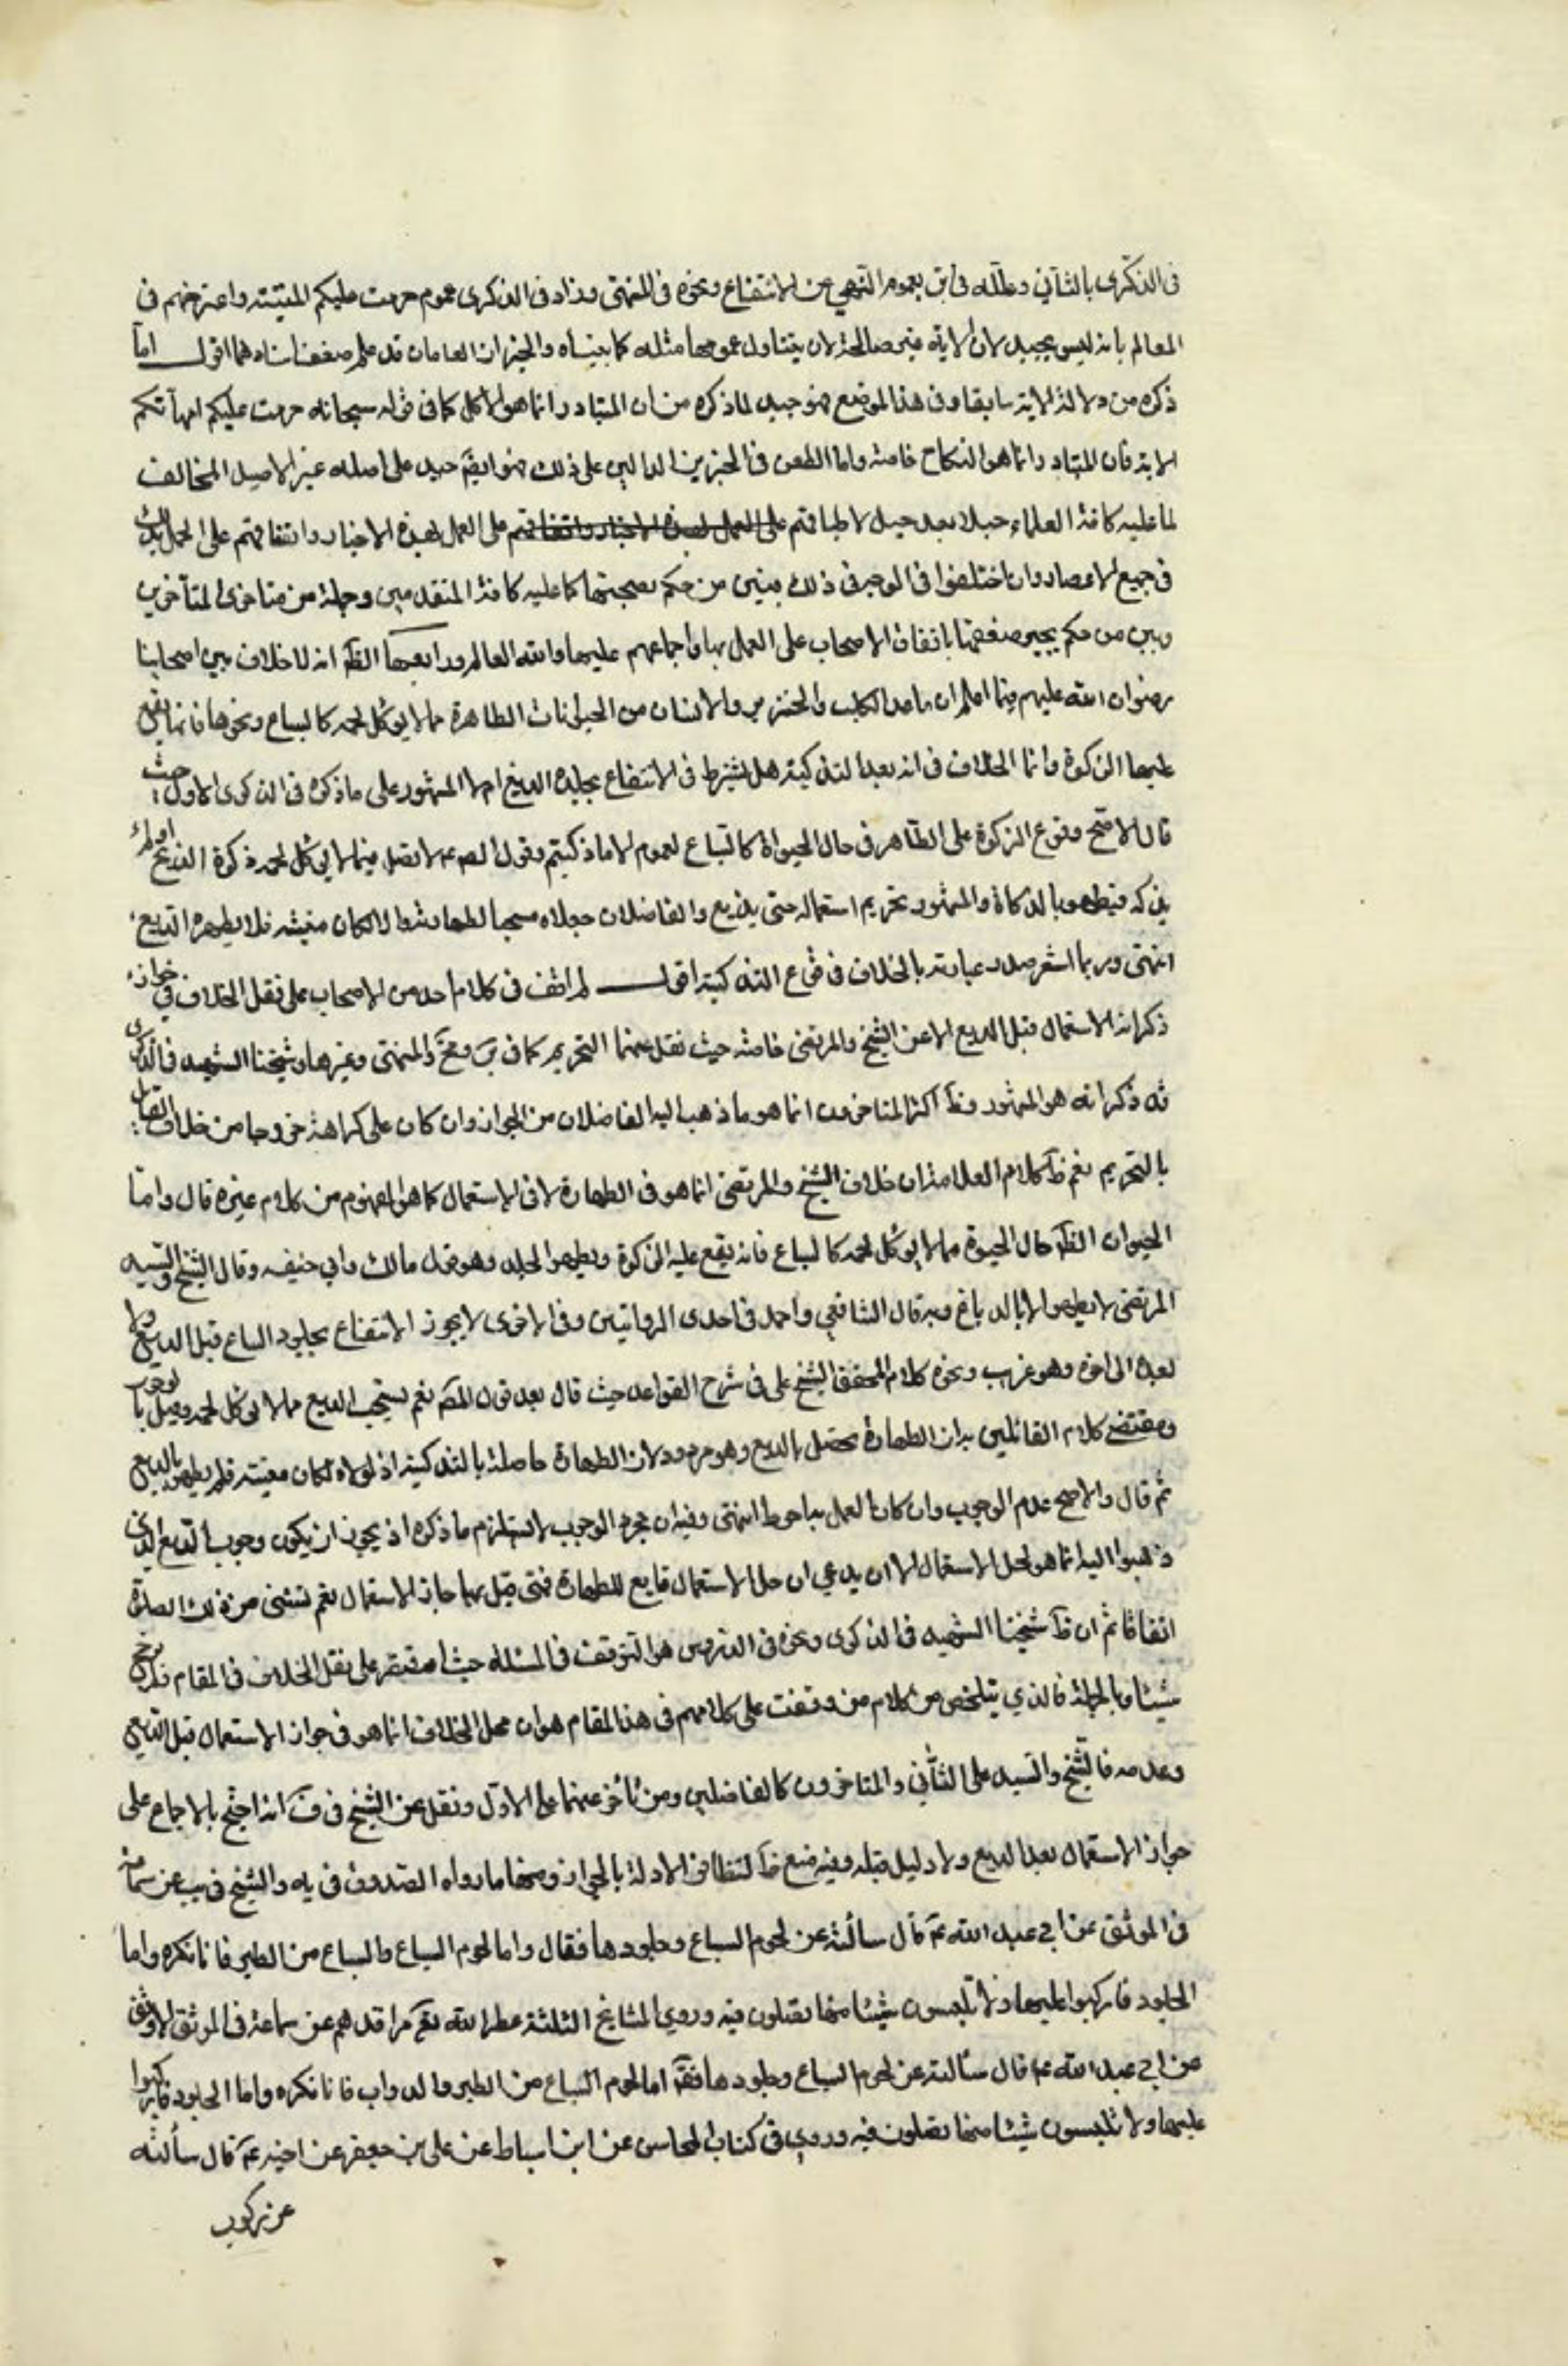 في الذكرى بالثاني وعلله في بعموم النهي عن الانتفاع ونحوه في المنتهى وزاد في الذكرى عموم حرمت عليكم الميتة واعترضهم في
المعالم بانه ليس بجيد لان الاية غير صالحة لان يتناول عمومها مثله كما بيناه والخبران العامان قد علم ضعف اسنادهما اقول اما
ذكره من دلالة الاية سابقا وفي هذا الموضع فهو جيد لما ذكره من ان المتبادر انما هو الاكل كما في قوله سبحانه حرمت عليكم امهاتكم
الاية فان المتبادر انما هو النكاح خاصة واما الطعن في الخبرين الدالين على ذلك فهو ايضا جيد على اصله غير الاصيل المخالف
لما عليه كافة العلماء جيلا بعد جيل لاطباقهم على العمل بهذه الاخبار واتفاقهم على العمل بهذه الاخبار واتفاقهم على العمل بذلك
في جميع الاعصار وان اختلفوا في الوجه في ذلك بين من حكم بصحتها كما عليه كافة المتقدمين وجملة من متاخري المتاخرين
وبين من حكم بجبر ضعفها باتفاق الاصحاب على العمل بها واجماعهم عليها والله العالم ورابعها الظ انه لا خلاف بين اصحابنا
رضوان الله عليهم فيما اعلم ان ما عدا الكلب والخنزير والانسان من الحيوانات الطاهرة مما لا يوكل لحمه كالسباع ونحوها فانما يقع
عليها الذكوة وانما الخلاف في انه بعد التذكية هل يشترط في الانتفاع بجلده الدبغ ام لا المشهور على ما ذكره في الذكرى الاول حيث
قال الاصح وقوع الذكوة على الطاهر في حال الحيوة كالسباع لعموم الا ما ذكيتم وقول الص ع لا تصل فيما لا يوكل لحمه ذكوة الذبح او لم
يذكه فيطهر بالذكاة والمشهور تحريم استعماله حتى يدبغ والفاضلان جعلاه مستحبا لطهارته والا لكان ميتة فلا يطهره الدبغ
انتهى وربما اشعر صدر عبارته بالخلاف في وقوع التذكية اقول لم اقف في كلام احد من الاصحاب على نقل الخلاف في جواز
ذكرانه الاستعمال قبل الدبغ الا عن الشيخ والمرتضى خاصة حيث نقل عنهما التحريم كما في والمنتهى وغيرها وشيخنا الشهيد في الذكرى
قد ذكر انه هو المشهور وظ اكثر المتاخرين انما هو ما ذهب اليه الفاضلان من الجواز وان كان على كراهة خروجا من خلاف القائل
بالتحريم نعم ظ كلام العلامة ان خلاف الشيخ والمرتضى انما هو في الطهارة لا في الاستعمال كما هو المفهوم من كلام غيره قال واما
الحيوان الظ حال الحيوة مما لا يوكل لحمه كالسباع فانه يقع عليه الذكوة ويطهر الجلد وهو قول مالك وابي حنيفه وقال الشيخ والسيد
المرتضى لا يطهر الا بالدباغ وبه قال الشافعي واحمد في احدى الروايتين وفي الاخرى لا يجوز الانتفاع بجلود السباع قبل الدبغ ولا
بعده الى اخره وهو غريب ونحوه كلام المحقق الشيخ علي في شرح القواعد حيث قال بعد قول المص نعم يستحب الدبغ مما لا يوكل لحمه وقيل بالوجوب
ومقتضى كلام القائلين به ان الطهارة تحصل بالدبغ وهو مردود لان الطهارة حاصلة بالتذكية اذ لولاه لكان ميتة فلم يطهر بالدبغ
ثم قال والاصح عدم الوجوب وان كان العمل به احوط انتهى وفيه ان مجرد الوجوب لا يستلزم ما ذكره اذ يجوز ان يكون وجوب الدبغ الذي
ذهبوا اليه انما هو لحل الاستعمال الا ان يدعي ان حل الاستعمال تابع للطهارة فمتى قيل بها جاز الاستعمال نعم تستثنى من ذلك الصلاة
اتفاقا ثم ان ظ شيخنا الشهيد في الذكرى ونحوه في الدروس هو التوقف في المسئلة حيث اقتصر على نقل الخلاف في المقام ولم يرجح
شيئا وبالجملة فالذي يتلخص من كلام من وقفت على كلامهم في هذا المقام هو ان محل الخلاف انما هو في جواز الاستعمال قبل الدبغ
وعدمه فالشيخ والسيد على الثاني والمتاخرون كالفاضلين ومن تأخر عنهما على الاول ونقل عن الشيخ في ف انه احتج بالاجماع على
جواز الاستعمال بعد الدبغ ولا دليل قبله وفيه منع ظ لتظافر الادلة بالجواز ومنها ما رواه الصدوق في يه والشيخ في يب عن سماعه
في الموثق عن ابي عبد الله ع قال سألته عن لحوم السباع وجلودها فقال واما لحوم السباع والسباع من الطير فانا نكره واما
الجلود فاركبوا عليها ولا تلبسون شيئا منها تصلون فيه وروى المشايخ الثلثة عطر الله تع مراقدهم عن سماعة في الموثق الاوثق
عن ابي عبد الله ع قال سألته عن لحوم السباع وجلودها فق اما لحوم السباع من الطير والدواب فانا نكره واما الجلود فاركبوا
عليها ولا تلبسون شيئا منها تصلون فيه وروى في كتاب المحاسن عن ابن اسباط عن علي بن جعفر عن اخيه ع قال سألته
عن ركوب